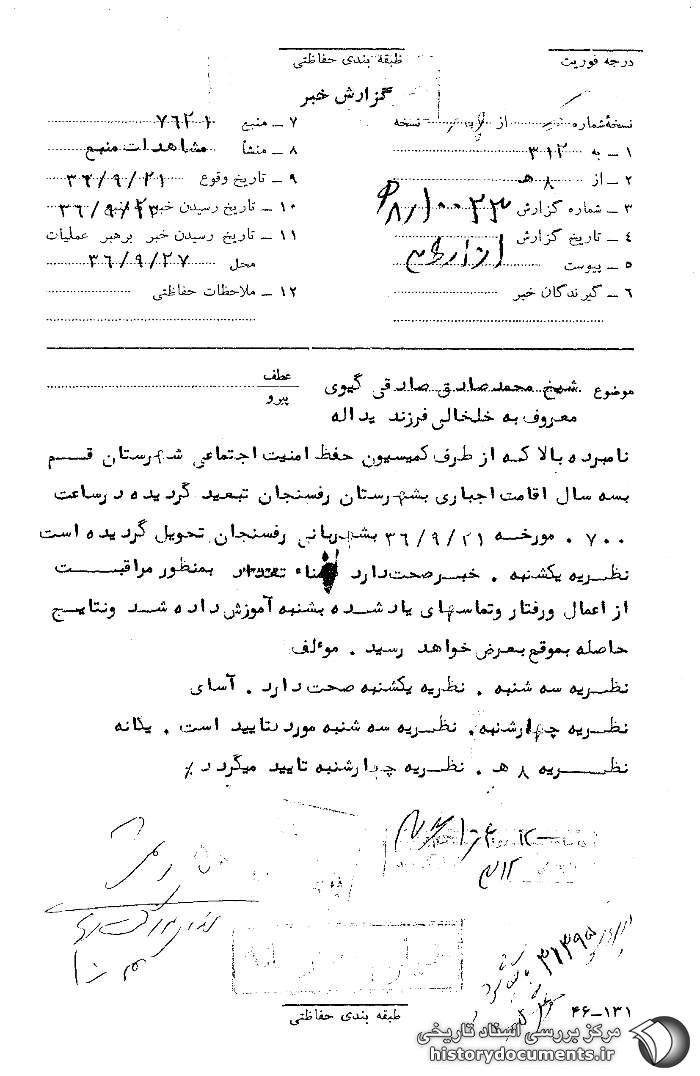 درجه فوریت
طبقه بندی حفاظتی
گزارش خبر
نسخهٔ شماره از نسخه
۱ ـ به ۳۱۲
۲ ـ از ۸ هـ
۳ ـ شماره گزارش
۴ ـ تاریخ گزارش
۵ ـ پیوست
۶ ـ گیرندگان خبر
۷ ـ منبع ۷۶۲۱
۸ ـ منشأ مشاهدات منبع
۹ ـ تاریخ وقوع ۳۶/۹/۲۱
۱۰ ـ تاریخ رسیدن خبر
۱۱ ـ تاریخ رسیدن خبر برهبر عملیات
محل ۳۶/۹/۲۷
۱۲ ـ ملاحظات حفاظتی
موضوع شیخ محمد صادق صادقی گیوی
معروف به خلخالی فرزند یداله
عطف
پیرو
نامبرده بالا که از طرف کمیسیون حفظ امنیت اجتماعی شهرستان قم
بسه سال اقامت اجباری بشهرستان رفسنجان تبعید گردیده درساعت
۷۰۰ . مورخه ۳۶/۹/۲۱ بشهربانی رفسنجان تحویل گردیده است
نظریه یکشنبه . خبر صحت دارد ضمناً بمنظور مراقبت
از اعمال ورفتار وتماسهای یاد شده بشنبه آموزش داده شد ونتایج
حاصله بموقع بعرض خواهد رسید . موءلف
نظریه سه شنبه . نظریه یکشنبه صحت دارد . آسای
نظریه چهارشنبه . نظریه سه شنبه مورد تایید است . یگانه
نظریه ۸ هـ . نظریه چهارشنبه تایید میگردد ٪
۳۱۲
۳۱۳۹۵
طبقه بندی حفاظتی
۴۶-۱۳۱
مرکز بررسی اسناد تاریخی
historydocuments.ir